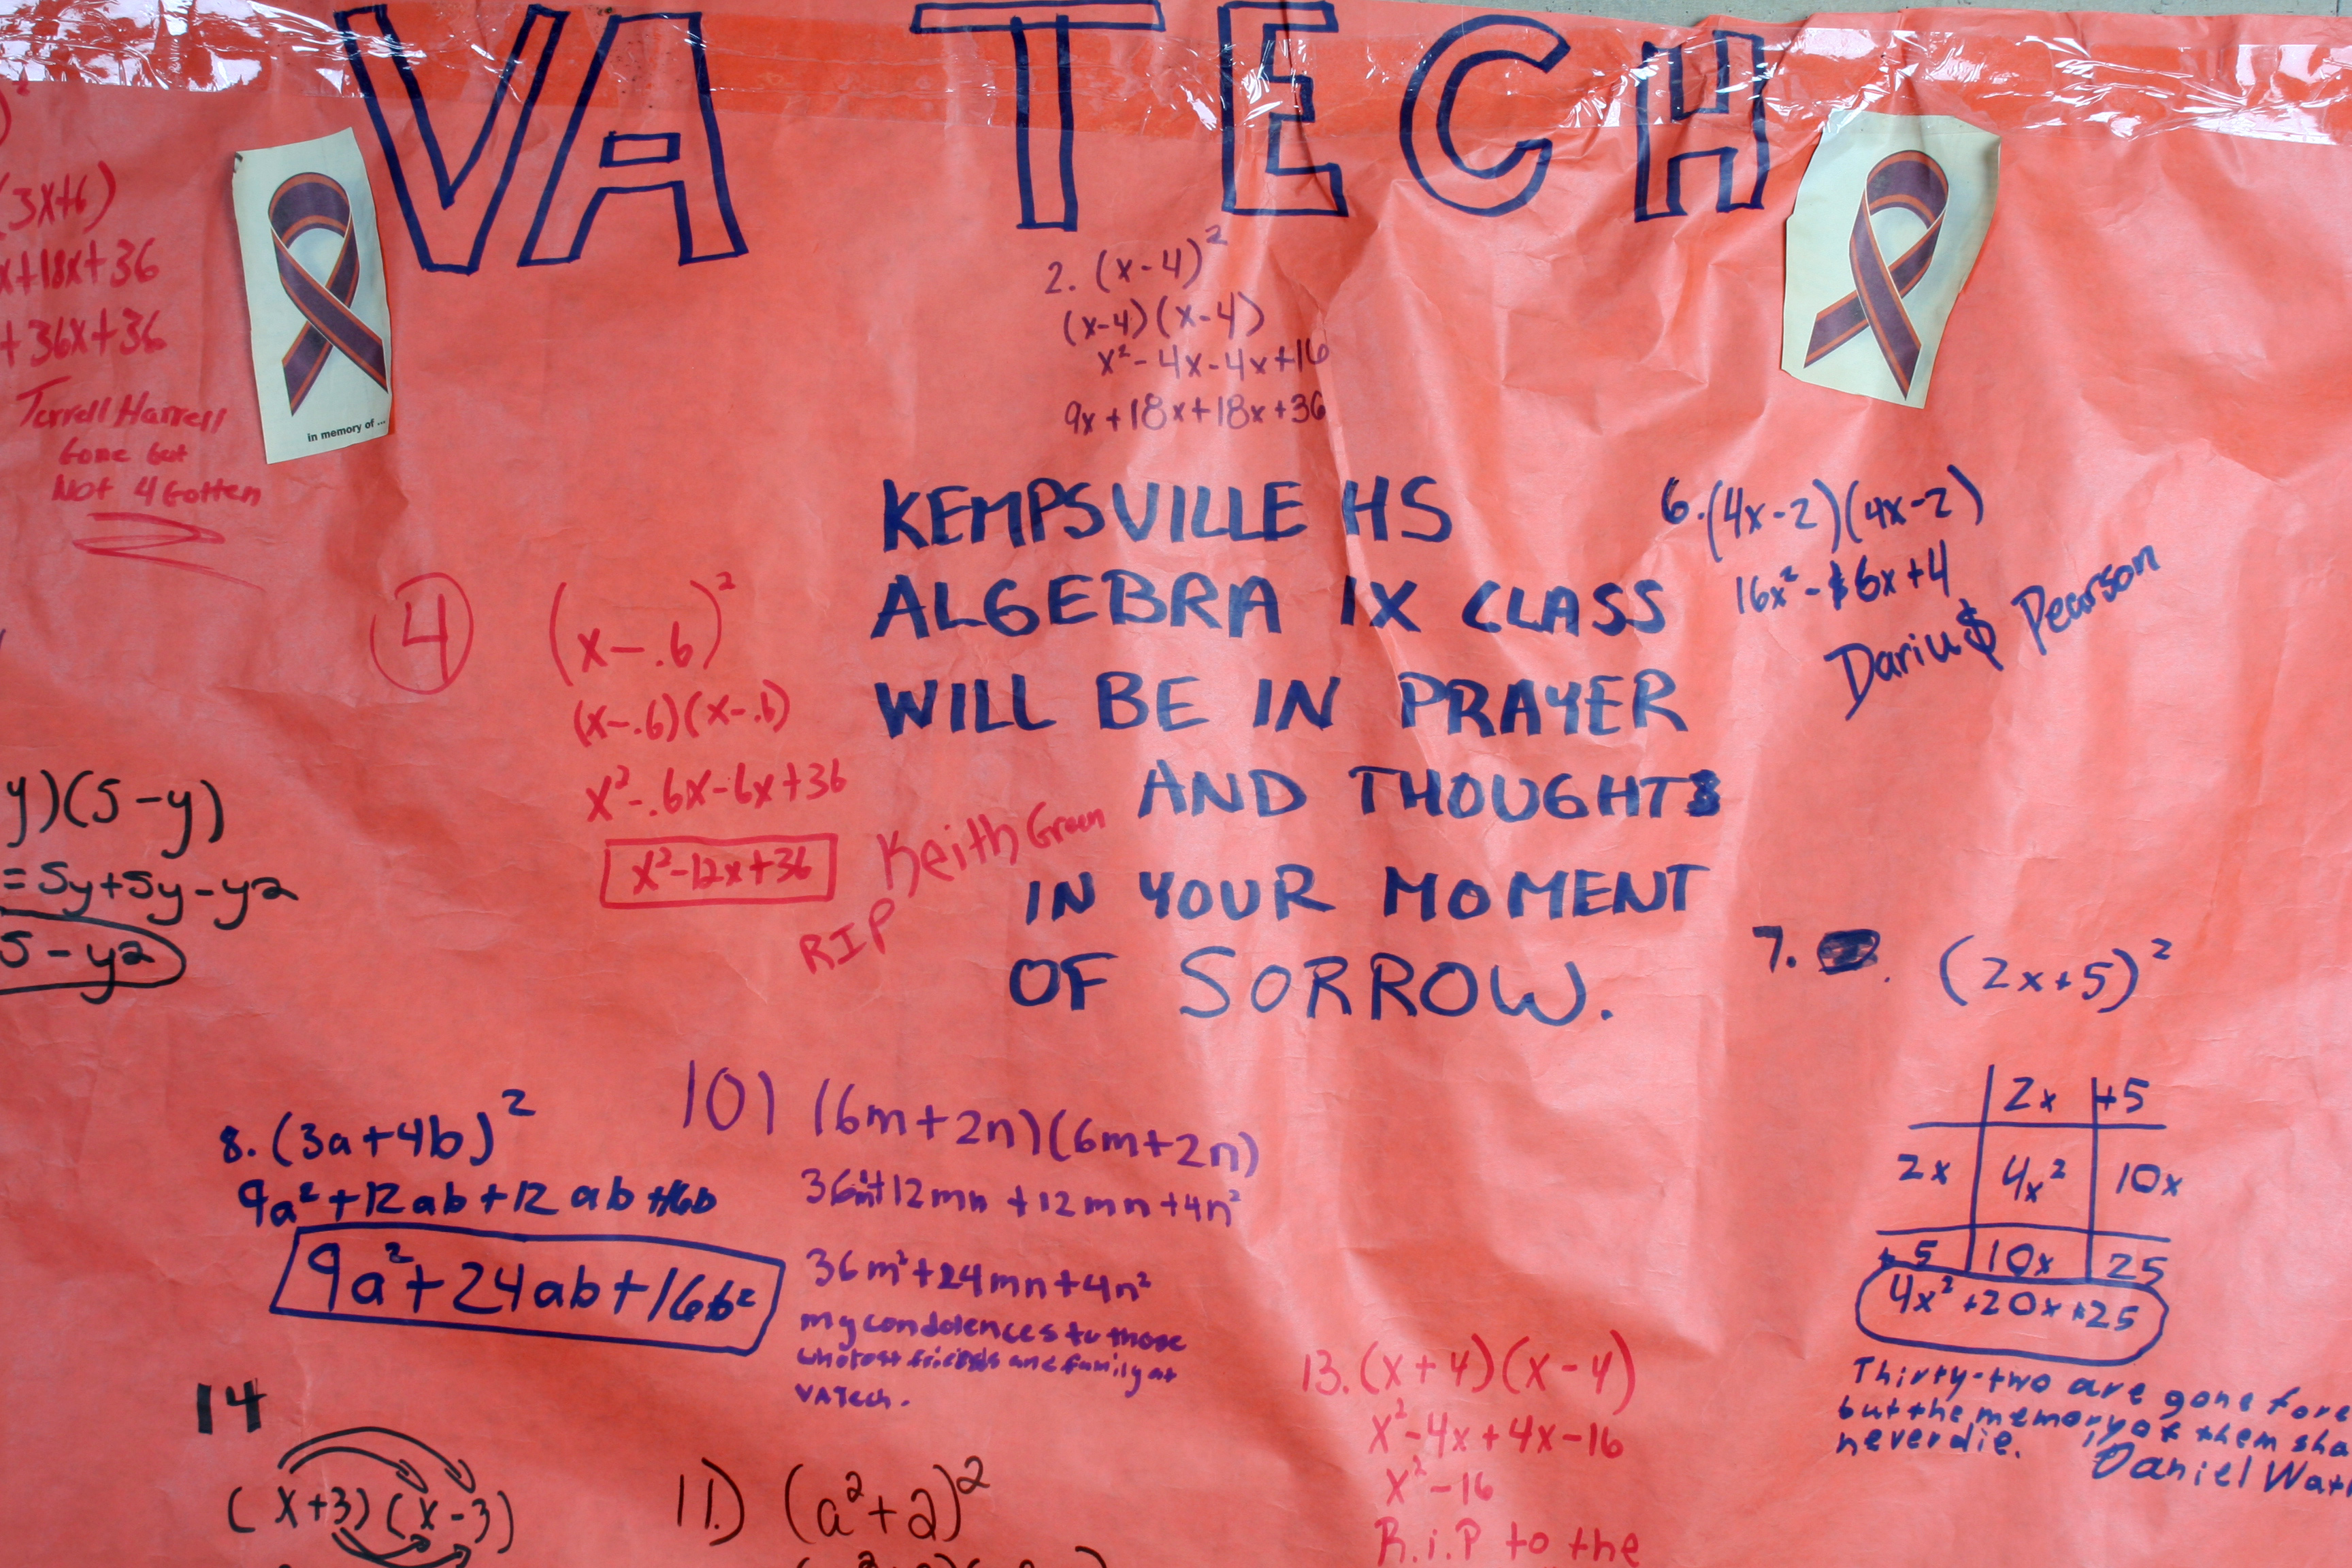 VA TECH
(3x+6)
x+18x+36
+36x+36
Terrell Harrell
Gone but
Not 4 Gotten
in memory of ...
2. (x-4)²
(x-4)(x-4)
x²-4x-4x+16
9x+18x+18x+36
KEMPSVILLE HS
ALGEBRA 1X CLASS
WILL BE IN PRAYER
AND THOUGHTS
IN YOUR MOMENT
OF SORROW.
6.(4x-2)(4x-2)
16x²-16x+4
Dariu$ Pearson
4
(x-.6)²
(x-.6)(x-.6)
x²-.6x-6x+36
x²-12x+36
RIP Keith Green
y)(5-y)
=5y+5y-y2
5-y2
7. (2x+5)²
2x +5
2x 4x² 10x
+5 10x 25
4x²+20x+25
Thirty-two are gone fore
but the memory of them sha
never die.
Daniel Wat
8. (3a+4b)²
9a²+12ab+12ab+16b
9a²+24ab+16b²
10) (6m+2n)(6m+2n)
36m²+12mn+12mn+4n²
36m²+24mn+4n²
my condolences to those
who lost friends and family at
VA Tech.
13. (x+4)(x-4)
x²-4x+4x-16
x²-16
R.i.P to the
14
(x+3)(x-3)
11.) (a²+2)²